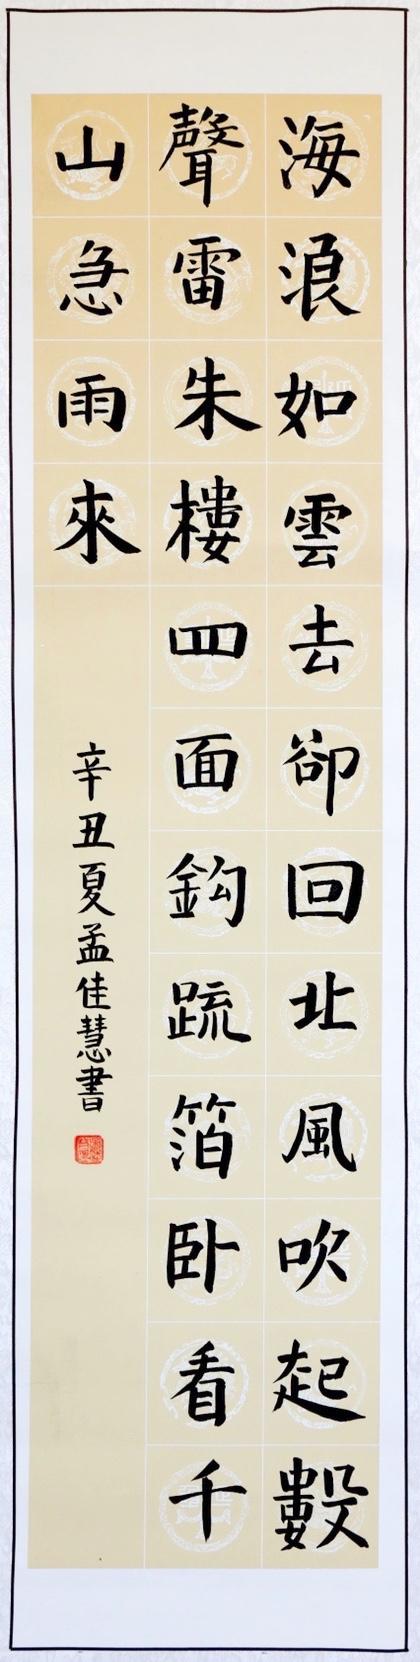 海浪如雲去卻回北風吹起數
聲雷朱樓四面鈎疏箔卧看千
山急雨來
辛丑夏孟佳慧書